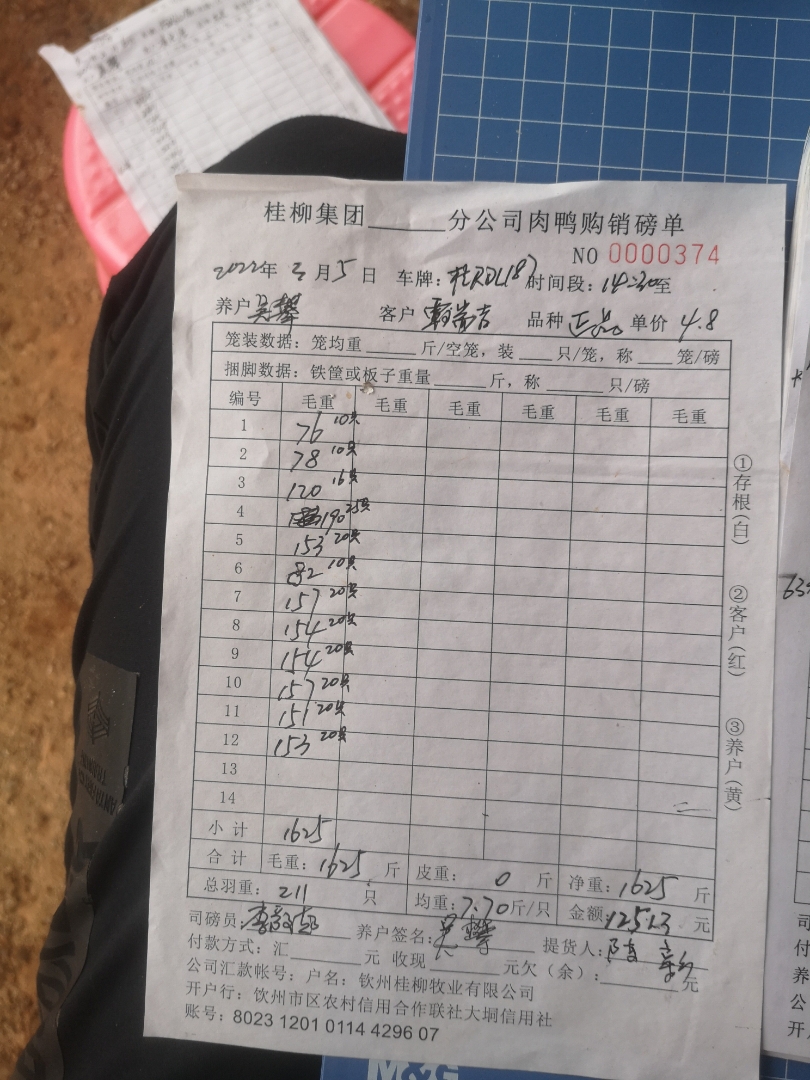 桂柳集团______分公司肉鸭购销磅单
NO 0000374
2022年 3月5日 车牌: 时间段: 14:30至
养户 吴 客户 品种 正品 单价 4.8
笼装数据: 笼均重____斤/空笼, 装___只/笼, 称____笼/磅
捆脚数据: 铁筐或板子重量_____斤, 称_____只/磅
编号 毛重 毛重 毛重 毛重 毛重 毛重
1 76 10只
2 78 10只
3 120 16只
4 190 25只
5 153 20只
6 82 10只
7 157 20只
8 154 20只
9 154 20只
10 157 20只
11 151 20只
12 153 20只
13
14
小计 1625
合计 毛重: 1625 斤 皮重: 0 斤 净重: 1625 斤
总羽重: 211 只 均重: 7.70斤/只 金额: 12513 元
司磅员: 养户签名: 吴 提货人:
付款方式: 汇______元 收现______元欠(余):______元
公司汇款帐号: 户名: 钦州桂柳牧业有限公司
开户行: 钦州市区农村信用合作联社大垌信用社
账号: 8023 1201 0114 4296 07
①存根(白)
②客户(红)
③养户(黄)
M&G